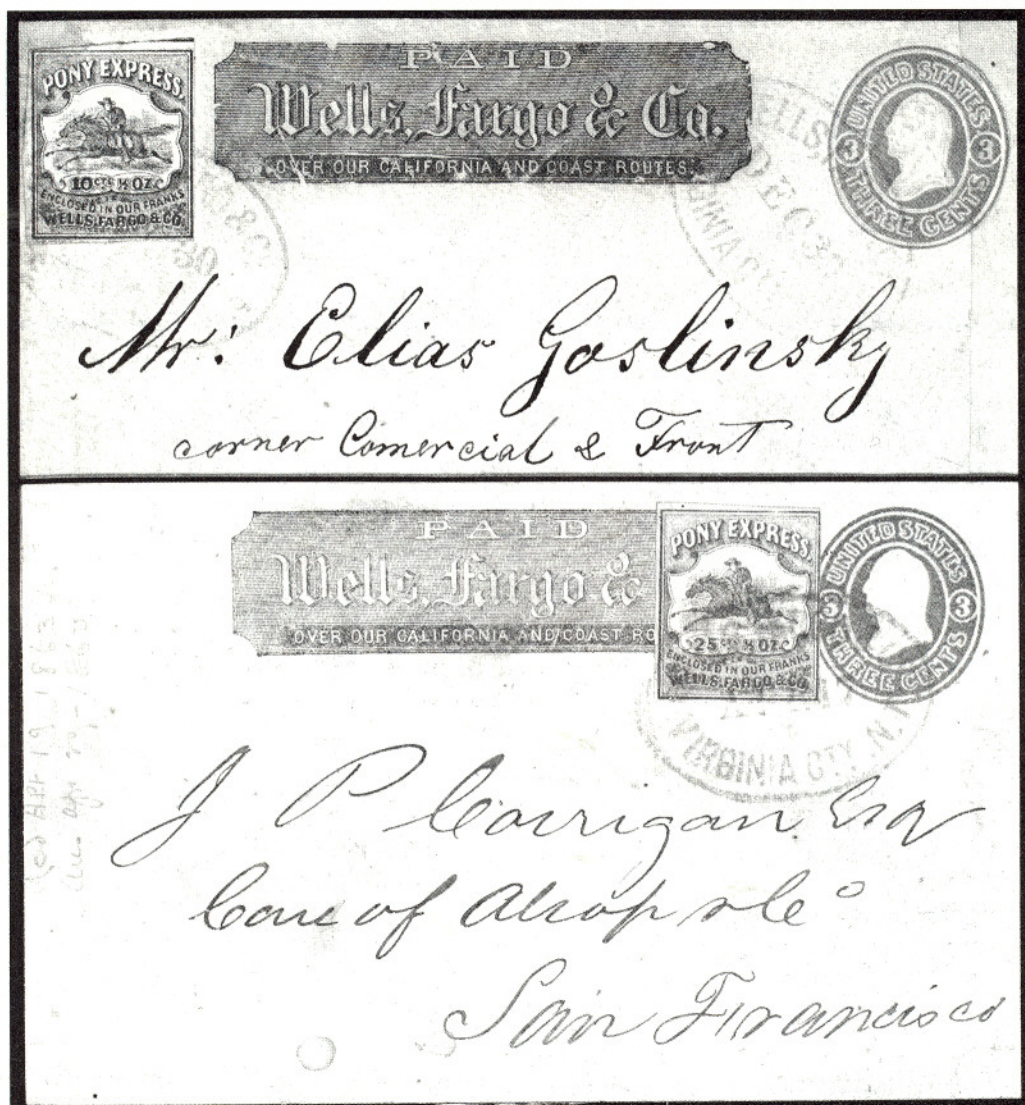 PONY EXPRESS.
10 CTS ½ OZ.
ENCLOSED IN OUR FRANKS
WELLS, FARGO & CO.
PAID
Wells, Fargo & Co.
OVER OUR CALIFORNIA AND COAST ROUTES.
& CO
30
WELLS,
DEC
UNITED STATES
3 3
THREE CENTS
Mr: Elias Goslinsky
corner Comercial & Front
PAID
Wells, Fargo &
OVER OUR CALIFORNIA AND COAST RO
PONY EXPRESS.
25 CTS ½ OZ.
ENCLOSED IN OUR FRANKS
WELLS, FARGO & CO.
UNITED STATES
3 3
THREE CENTS
VIRGINIA CTY. N.
J P Corrigan Esq
Care of Alsop & Co
San Francisco